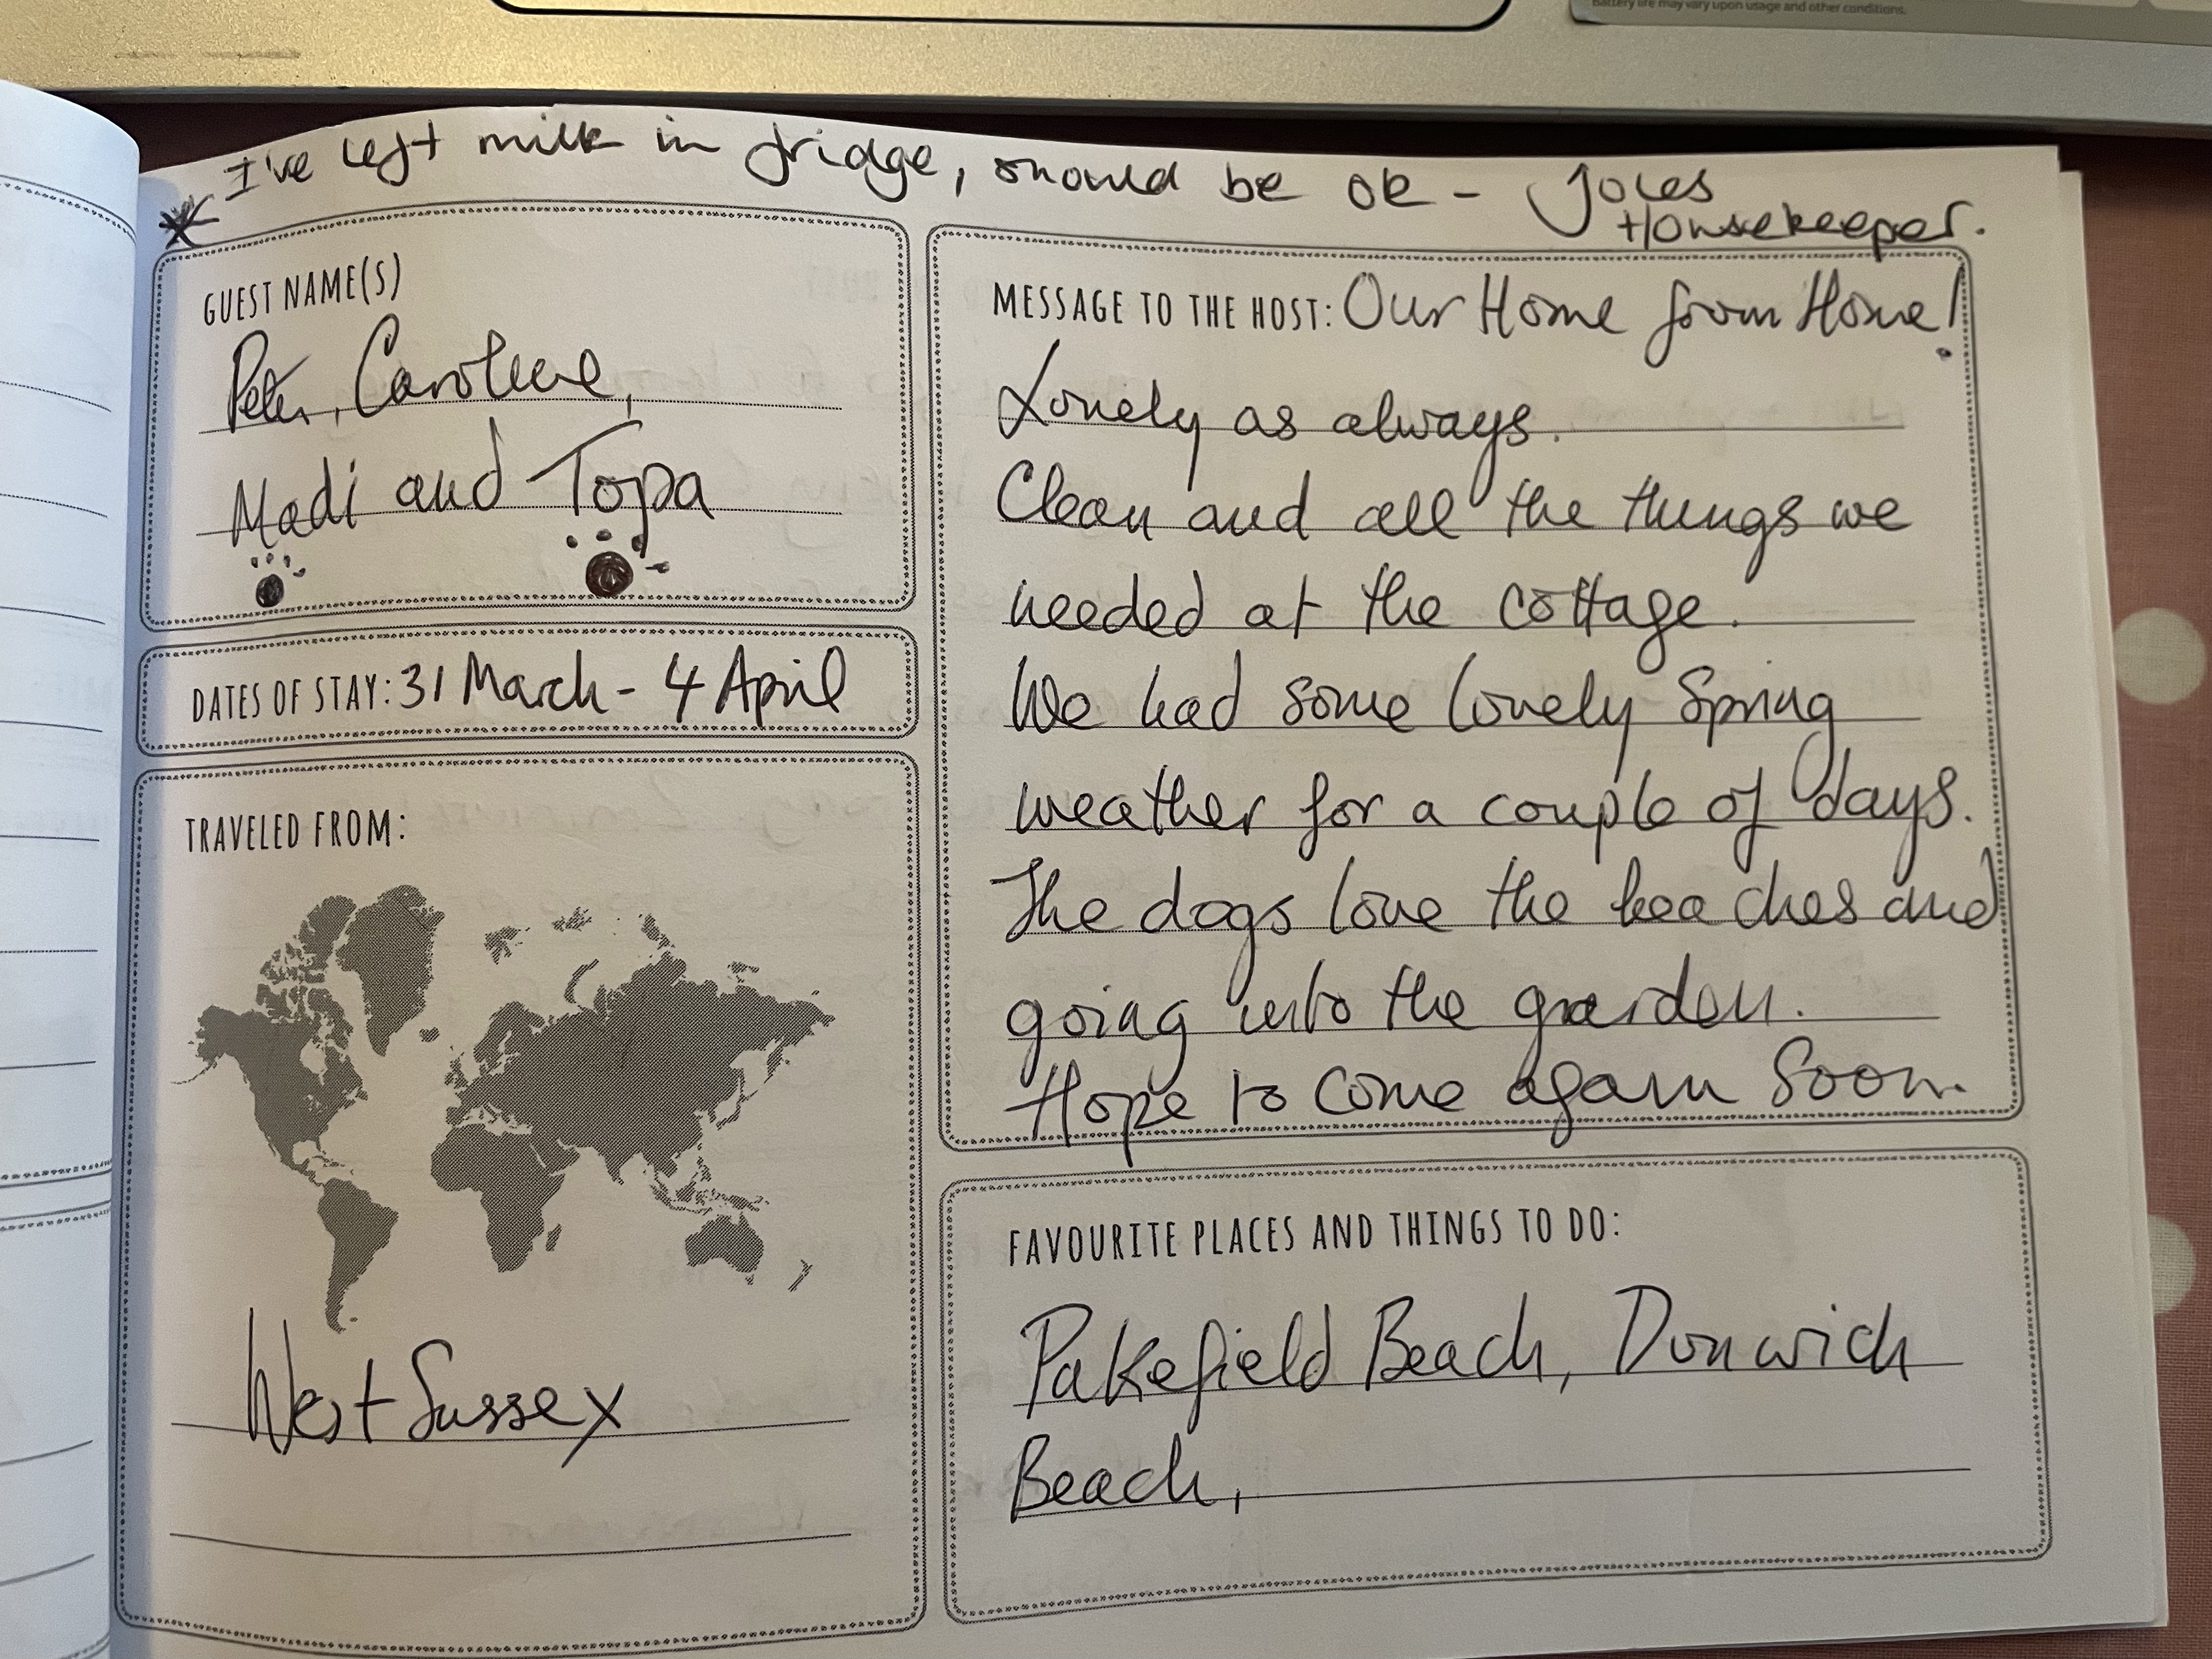 Battery life may vary upon usage and other conditions.
* I've left milk in fridge, should be ok - Joles
Housekeeper.
GUEST NAME(S)
Peter, Caroline,
Madi and Topa
DATES OF STAY: 31 March - 4 April
TRAVELED FROM:
West Sussex
MESSAGE TO THE HOST: Our Home from Home!
Lovely as always.
Clean and all the things we
needed at the cottage.
We had some lovely Spring
weather for a couple of days.
The dogs love the beaches and
going into the garden.
Hope to come again soon.
FAVOURITE PLACES AND THINGS TO DO:
Pakefield Beach, Donwich
Beach,